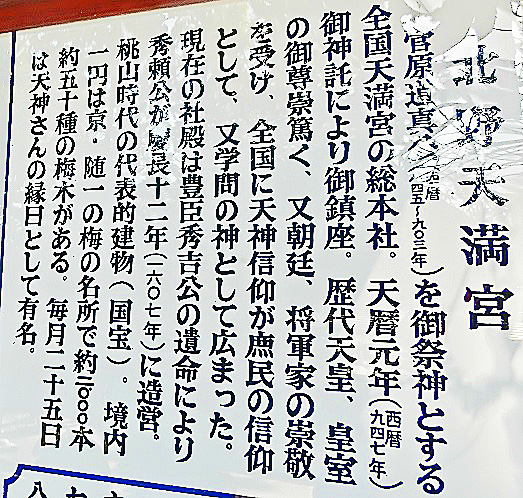 北野天満宮
菅原道真公(西暦八四五〜九〇三年)を御祭神とする
全国天満宮の総本社。天暦元年(西暦九四七年)
御神託により御鎮座。歴代天皇、皇室
の御尊崇篤く、又朝廷、将軍家の崇敬
を受け、全国に天神信仰が庶民の信仰
として、又学問の神として広まった。
現在の社殿は豊臣秀吉公の遺命により
秀頼公が慶長十二年(一六〇七年)に造営。
桃山時代の代表的建物(国宝)。境内
一円は京・随一の梅の名所で約二〇〇〇本
約五十種の梅木がある。毎月二十五日
は天神さんの縁日として有名。